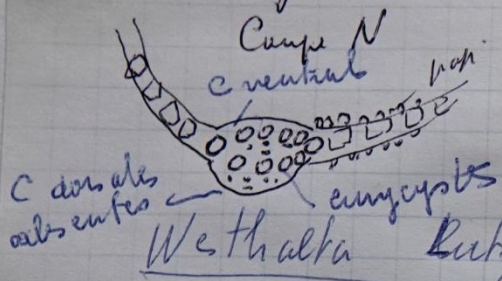 Coupe N
C ventral
pap.
C dorsales
absentes
eurycystes
Westhalta